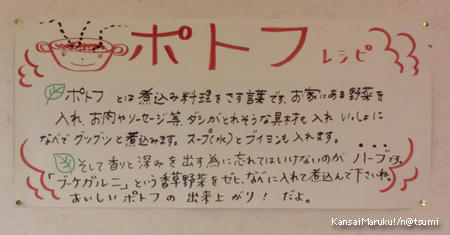 ポトフ レシピ
ポトフ とは煮込み料理をさす言葉です。お家にある野菜を
入れ、お肉やソーセージ等、ダシがとれそうな具材も入れ いっしょに
なべでグツグツと煮込みます。スープ(水)とブイヨンも入れます。
そして香りと深みを出す為に忘れてはいけないのが ハーブです。
「ブーケガルニ」という香草野菜をゼヒ、なべに入れて煮込んで下さいね。
おいしい ポトフ の 出来上がり! だよ。
KansaiMaruku!/n@tsumi